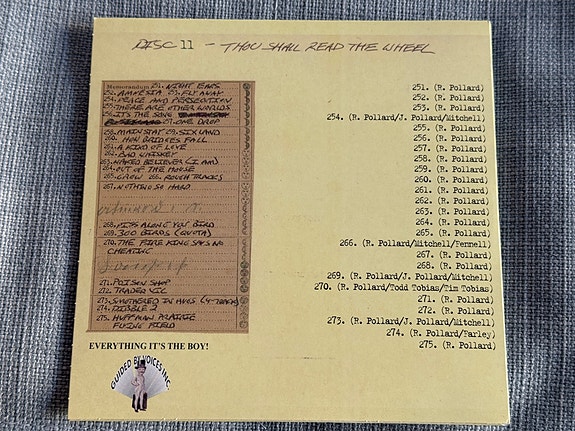 DISC 11 – THOU SHALL READ THE WHEEL
Memorandum 251. NIGHT EARS
252. AMNESIA 253. FLY AWAY
254. PEACE AND PERSECUTION
255. THERE ARE OTHER WORLDS
256. IT'S THE SONG
257. ONE DROP
258. MAINSTAY 259. SIX LAND
260. HOW BRIDGES FALL
261. A KIND OF LOVE
262. BAD WHISKEY
263. NAKED BELIEVER (I AM)
264. OUT OF THE HOUSE
265. GROW 266. ROUGH TRACKS
267. NOTHING SO HARD
268. PISS ALONG YOU BIRD
269. 300 BIRDS (QUOTA)
270. THE FIRE KING SAYS NO
CHEATING
271. POISON SHOP
272. TRADER VIC
273. SMOTHERED IN HUGS (4-TRACK)
274. DIBBLE 2
275. HUFFMAN PRAIRIE
FLYING FIELD
251. (R. Pollard)
252. (R. Pollard)
253. (R. Pollard)
254. (R. Pollard/J. Pollard/Mitchell)
255. (R. Pollard)
256. (R. Pollard)
257. (R. Pollard)
258. (R. Pollard)
259. (R. Pollard)
260. (R. Pollard)
261. (R. Pollard)
262. (R. Pollard)
263. (R. Pollard)
264. (R. Pollard)
265. (R. Pollard)
266. (R. Pollard/Mitchell/Fennell)
267. (R. Pollard)
268. (R. Pollard)
269. (R. Pollard/J. Pollard/Mitchell)
270. (R. Pollard/Todd Tobias/Tim Tobias)
271. (R. Pollard)
272. (R. Pollard)
273. (R. Pollard/J. Pollard/Mitchell)
274. (R. Pollard/Farley)
275. (R. Pollard)
EVERYTHING IT'S THE BOY!
GUIDED BY VOICES INC.